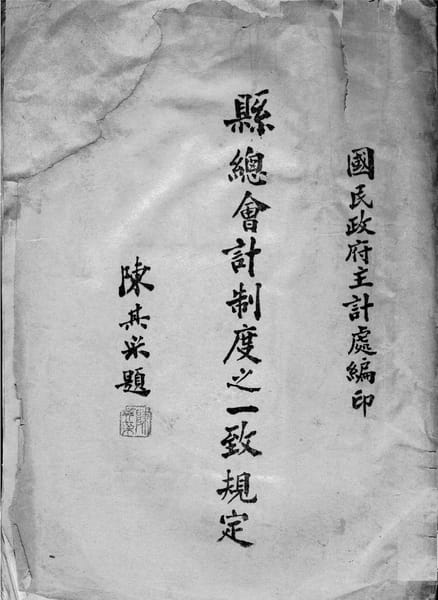 國民政府主計處編印
縣總會計制度之一致規定
陳其采題